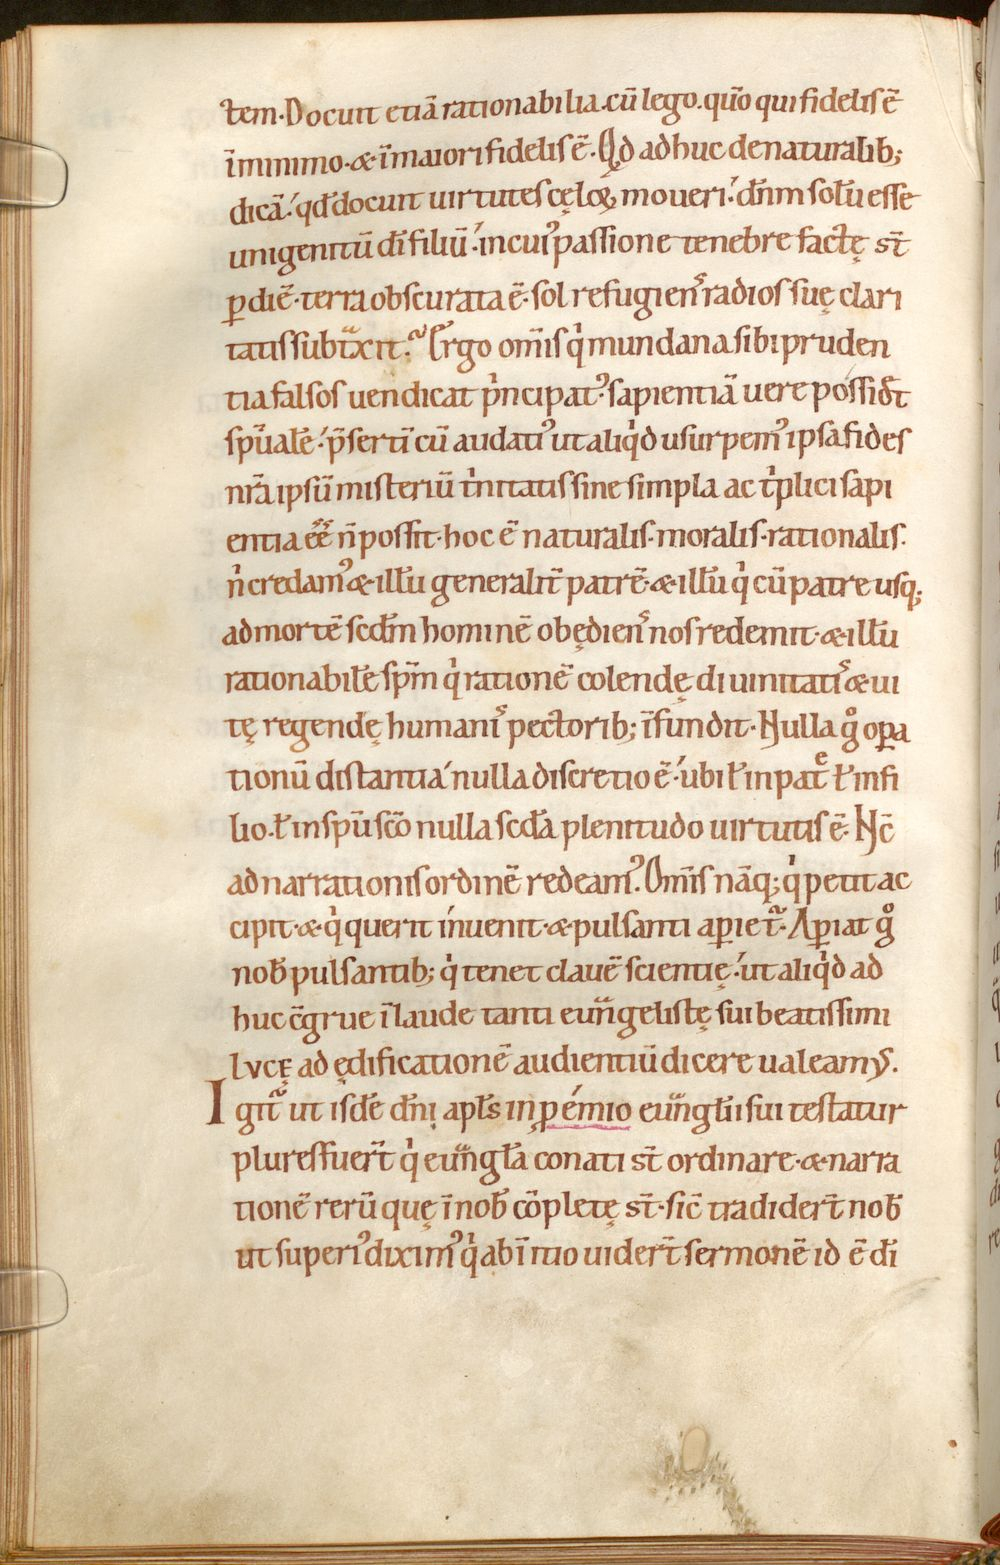 tem. Docuit etiā rationabilia. cū lego. quō qui fidelis ē
ī minimo. & ī maiori fidelis ē. Qđ adhuc de naturalib;
dicā. qđ docuit uirtutes cęloꝝ moueri. dn̄m solū esse
unigenitū dī filiū. in cuiꝰ passione tenebre factę st̄
ꝑ diē. terra obscurata ē. sol refugienſ radios suę clari
tatis subtraxit. Ergo om̄is q̇ mundana sibi pruden
tia falsos uendicat ṗncipatꝰ. sapientiā uere possidēt
spūalē. p̄sertī cū audatiꝰ ut aliq̇d usurpemꝰ ipsa fides
nr̄a ipsū misteriū tṙnitatis sine simpla ac tṙplici sapi
entia ēē n̄ possit. hoc ē naturalis. moralis. rationalis.
n̄ credamꝰ & illū generalit̄ patrē. & illū q̇ cū patre usq;
ad mortē scdm̄ hominē obędienſ nos redemit. & illū
rationabilē spm̄ q̇ rationē colendę diuinitatiſ & ui
tę regendę humaniſ pectorib; īfundit. Nulla gͦ opa
tionū distantia nulla discretio ē. ubi ł in patͤ ł in fi
lio. ł in spū scō nulla scda plenitudo uirtutis ē. Nc̄
ad narrationis ordinē redeamꝰ. Om̄is nāq; q̇ petit ac
cipit. & q̇ querit inuenit. & pulsanti aꝑiet᷑. Aꝑiat gͦ
nob̄ pulsantib; q̇ tenet clauē scientię. ut aliq̇d ad
huc c̄grue ī laude tanti euangelistę sui beatissimi
lvcę ad ędificationē audientiū dicere ualeamꝰ.
Igit᷑ ut isdē dn̄i apłs in ꝓemio euangłii sui testatur
plures fuert̄ q̇ euangła conati st̄ ordinare. & narra
tionē rerū quę ī nob̄ cōpletę st̄. sic̄ tradidert̄ nob̄
ut superiꝰ diximꝰ q̇ ab ītio uidert̄ sermonē id ē dī